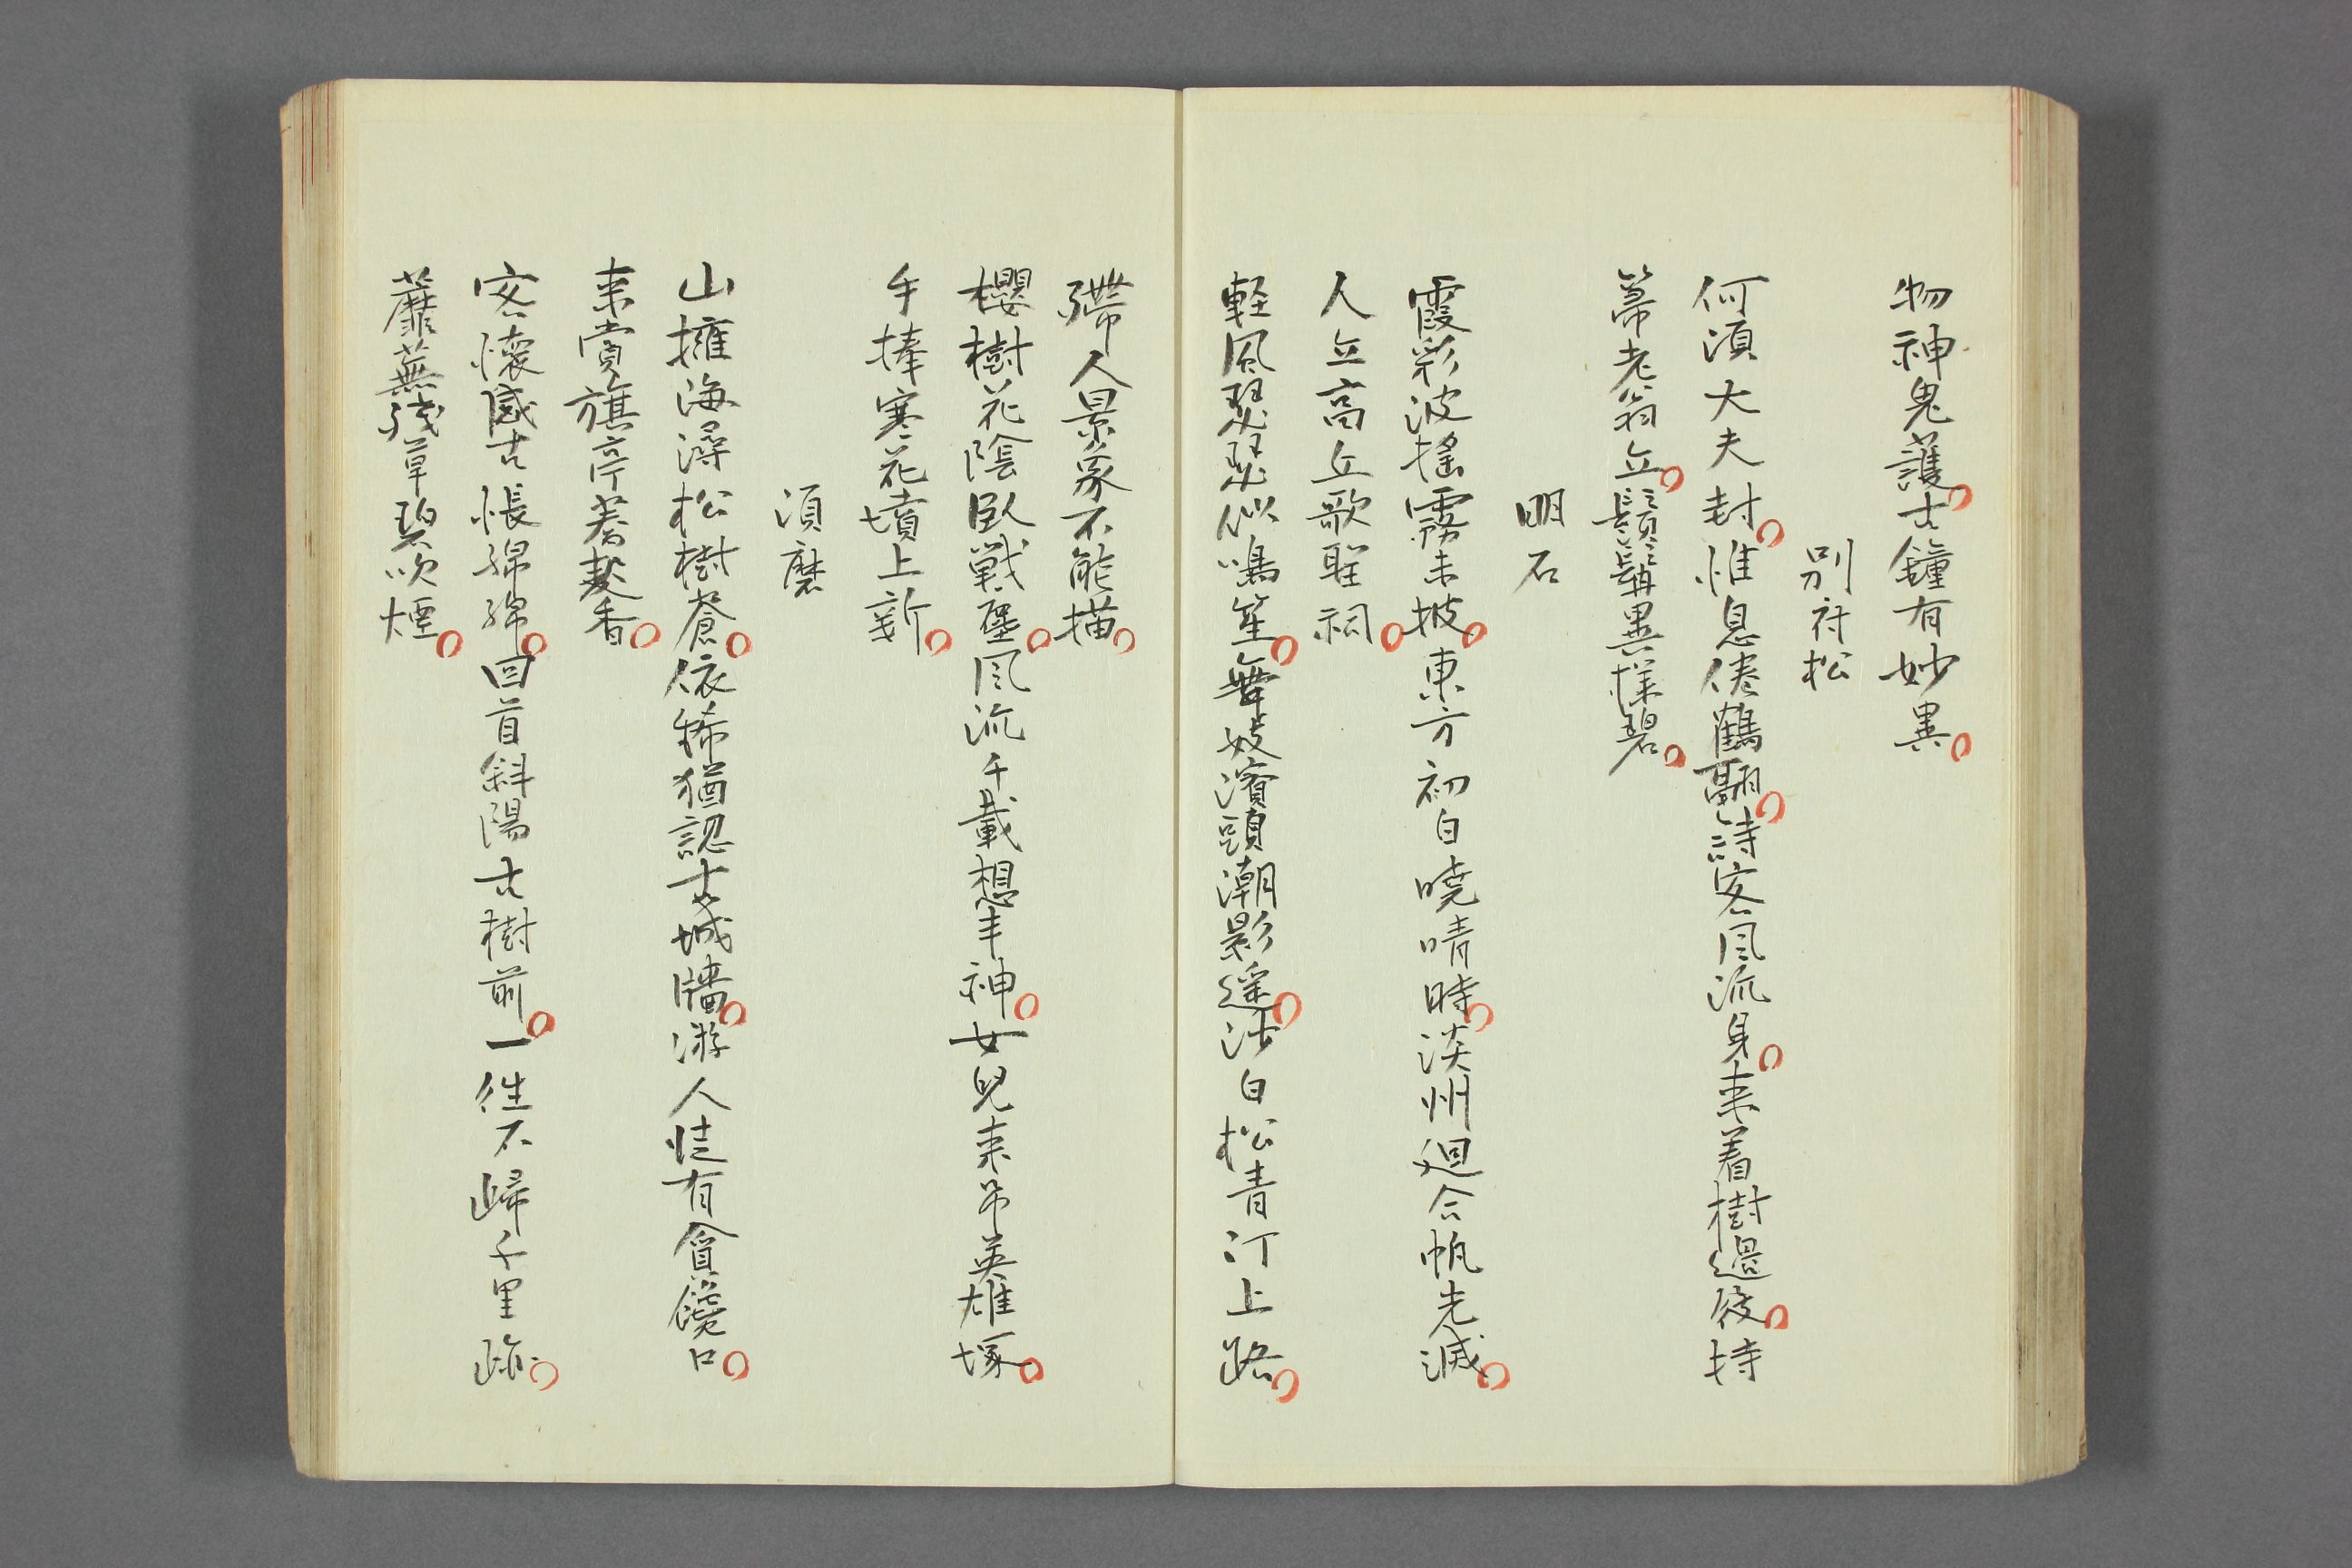 物神鬼護。古鐘有妙異。
別府松
何須大夫封。惟息倦鶴翮。詩客風流身。来着樹邊屐。持
箒老翁立。鬚髯異様碧。
明石
霞彩波揺霧未披。東方初白暁晴時。淡州廻合帆光滅。
人立高丘歌聖祠。
軽風瑟瑟似鳴笙。舞妓濱頭潮影遥。沙白松青汀上路。
殢人景象不能描。
櫻樹花陰臥戦塵。風流千載想丰神。女児来吊英雄塚。
手捧寒花墳上新。
須磨
山擁海潯松樹蒼。依稀猶認古城牆。游人怪有貪饞口。
来賞旗亭蕎麨香。
客懐感古悵綿綿。回首斜陽古樹前。一往不歸千里跡。
蘼蕪残草碧吹煙。